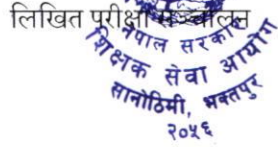 लिखित परीक्षा सञ्चालन
नेपाल सरकार
शिक्षक सेवा आयोग
सानोठिमी, भक्तपुर
२०५६